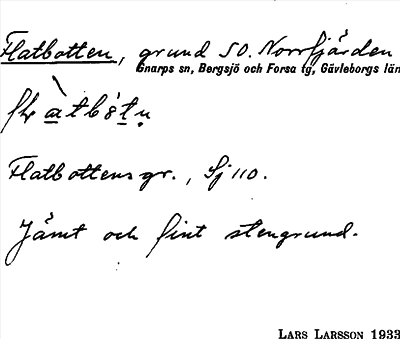 Flatbotten, grund SO. Norrfjärden
Gnarps sn, Bergsjö och Forsa tg, Gävleborgs län
Flatbottens gr., Sj 110.
Jämt och fint stengrund.
LARS LARSSON 1933